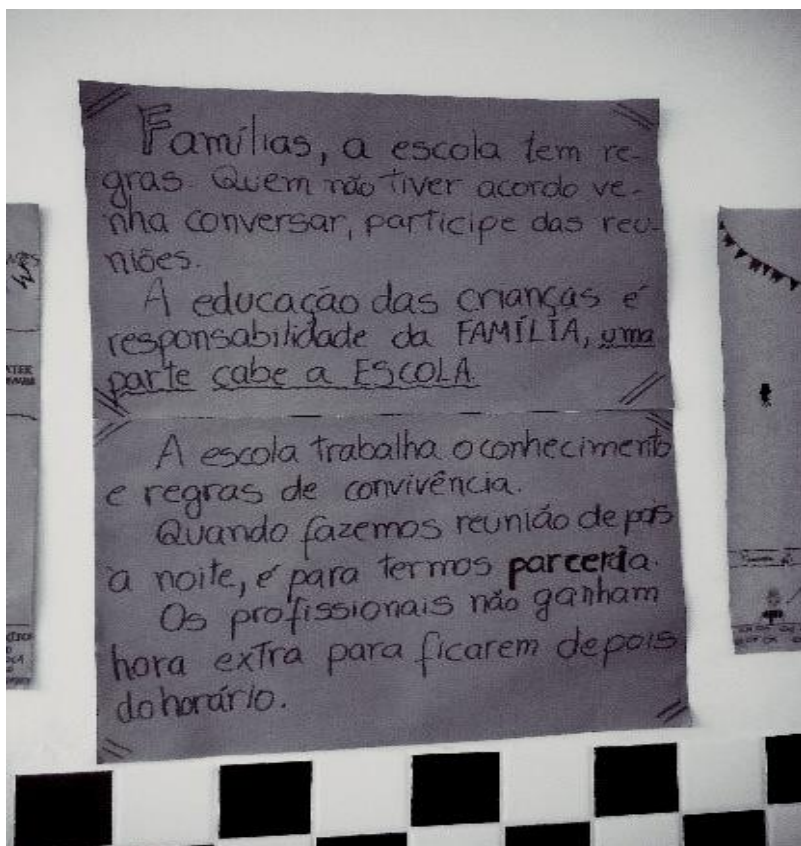 Famílias, a escola tem re-
gras. Quem não tiver acordo ve-
nha conversar, participe das reu-
niões.
A educação das crianças é
responsabilidade da FAMÍLIA, uma
parte cabe a ESCOLA.
A escola trabalha o conhecimento
e regras de convivência.
Quando fazemos reunião de pais
a noite, é para termos parceria.
Os profissionais não ganham
hora extra para ficarem depois
do horário.